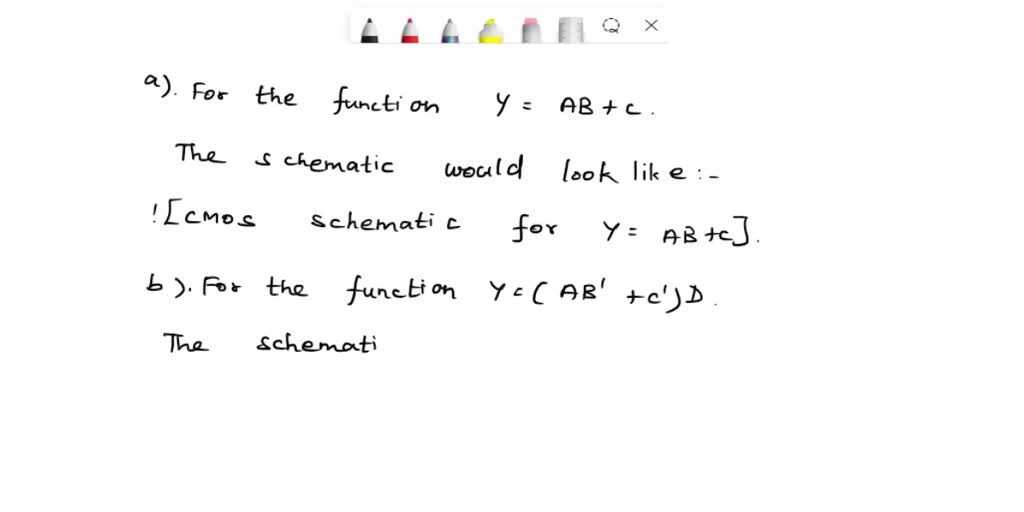 a). For the function Y = AB + C.
The schematic would look like :-
![CMOS schematic for Y = AB + C].
b). For the function Y = (AB' + C')D.
The schemati